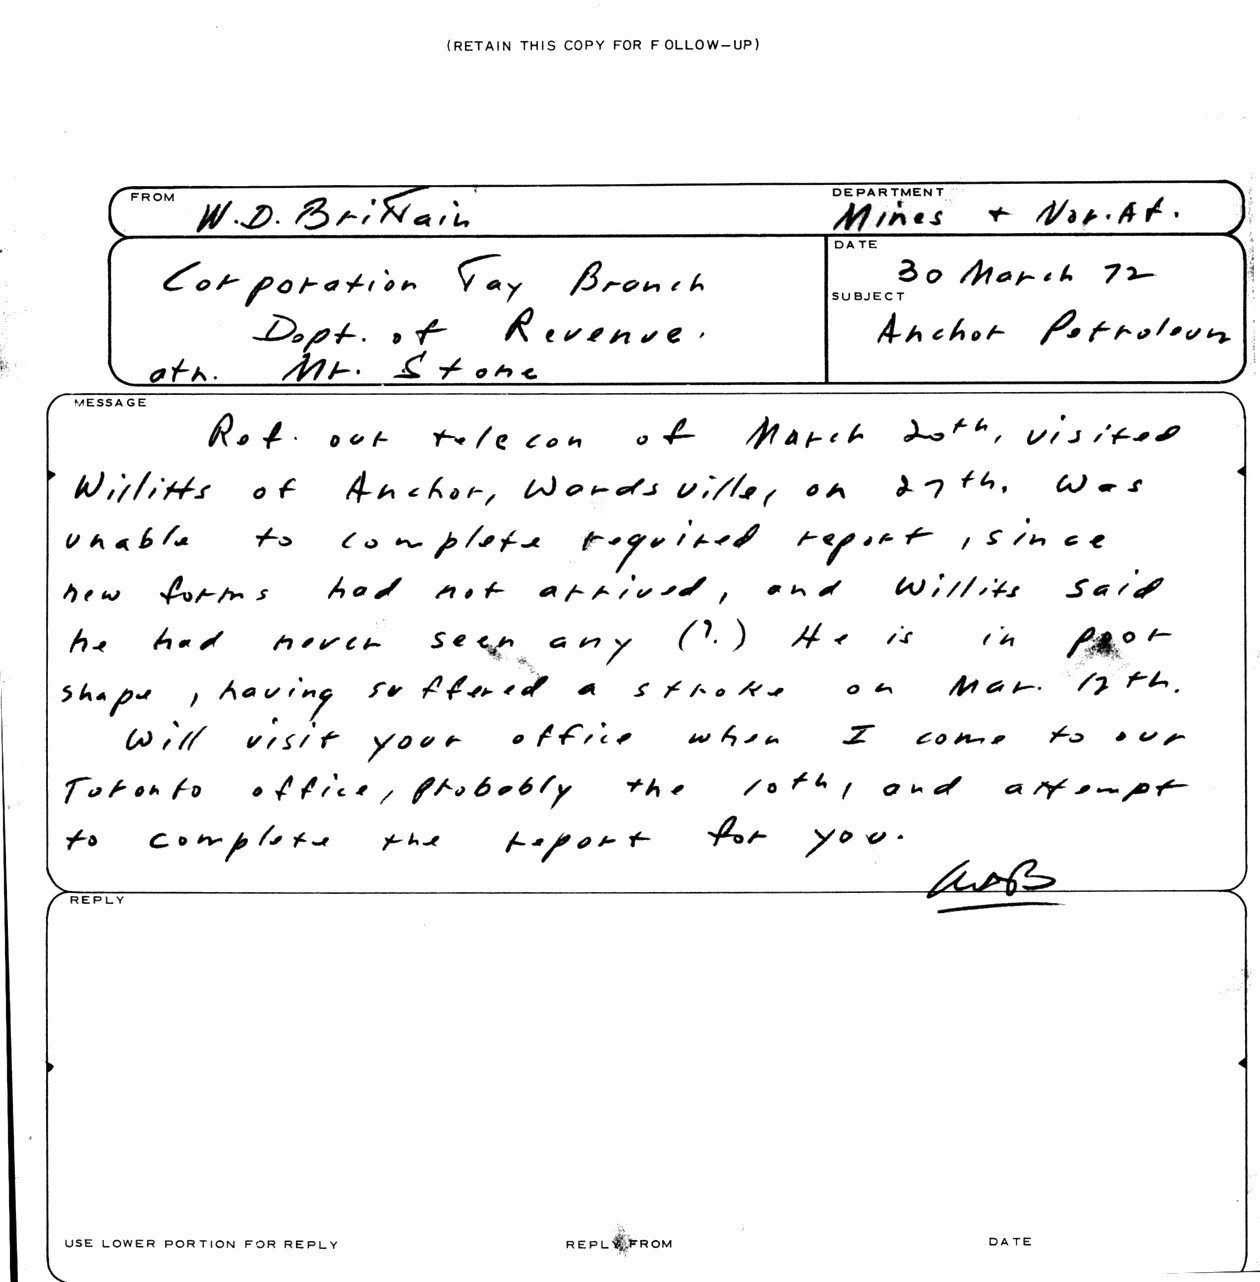 (RETAIN THIS COPY FOR FOLLOW-UP)
FROM W.D. Brittain
DEPARTMENT
Mines + Nor. Af.
Corporation Tax Branch
Dept. of Revenue.
attn. Mr. Stone
DATE
30 March 72
SUBJECT
Anchor Petroleum
MESSAGE
Ref. our telecon of March 20th, visited
Willitts of Anchor, Wardsville, on 27th. Was
unable to complete required report, since
new forms had not arrived, and Willits said
he had never seen any (?.) He is in poor
shape, having suffered a stroke on Mar. 12th.
Will visit your office when I come to our
Toronto office, probably the 10th, and attempt
to complete the report for you.
WDB
REPLY
USE LOWER PORTION FOR REPLY REPLY FROM DATE